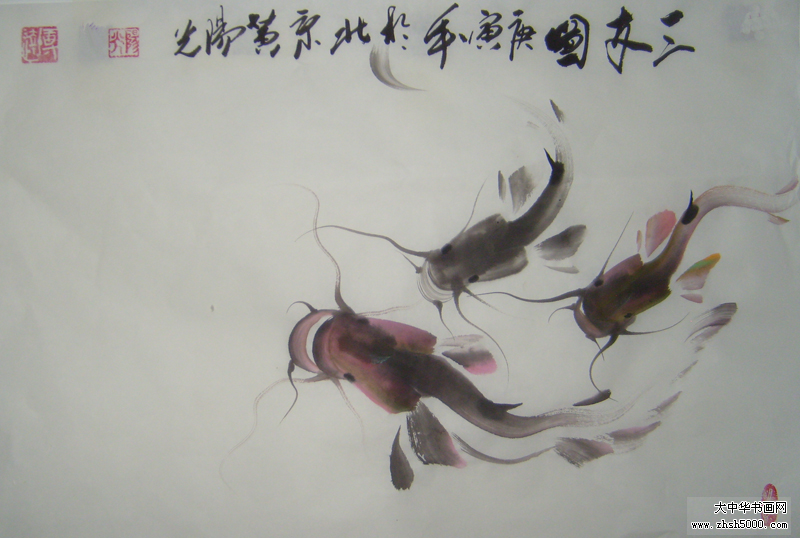 三友图庚寅年於北京黄阳光
大中华书画网
www.zhsh5000.com